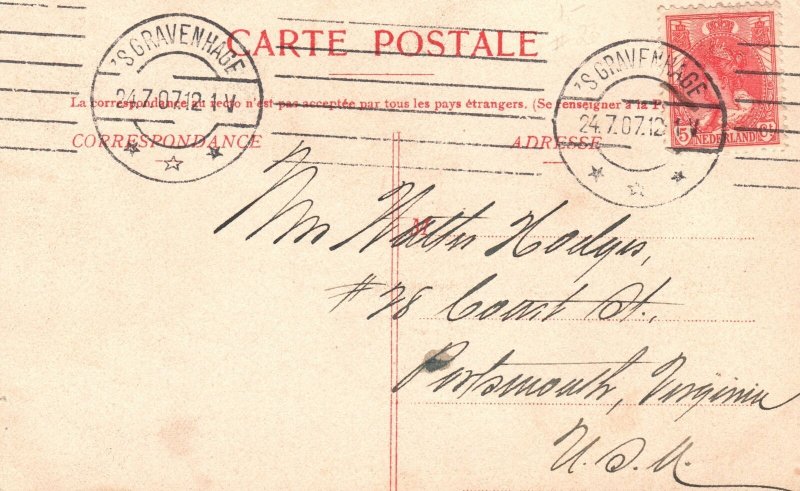 CARTE POSTALE
'S GRAVENHAGE
24.7.07.12-1 V
'S GRAVENHAGE
24.7.07.12-1 V
5 NEDERLAND Ct
La correspondance au recto n'est pas acceptée par tous les pays étrangers. (Se renseigner à la
CORRESPONDANCE
ADRESSE
M
Walter Hodges,
#78 Court St.,
Portsmouth, Virginia
U.S.A.